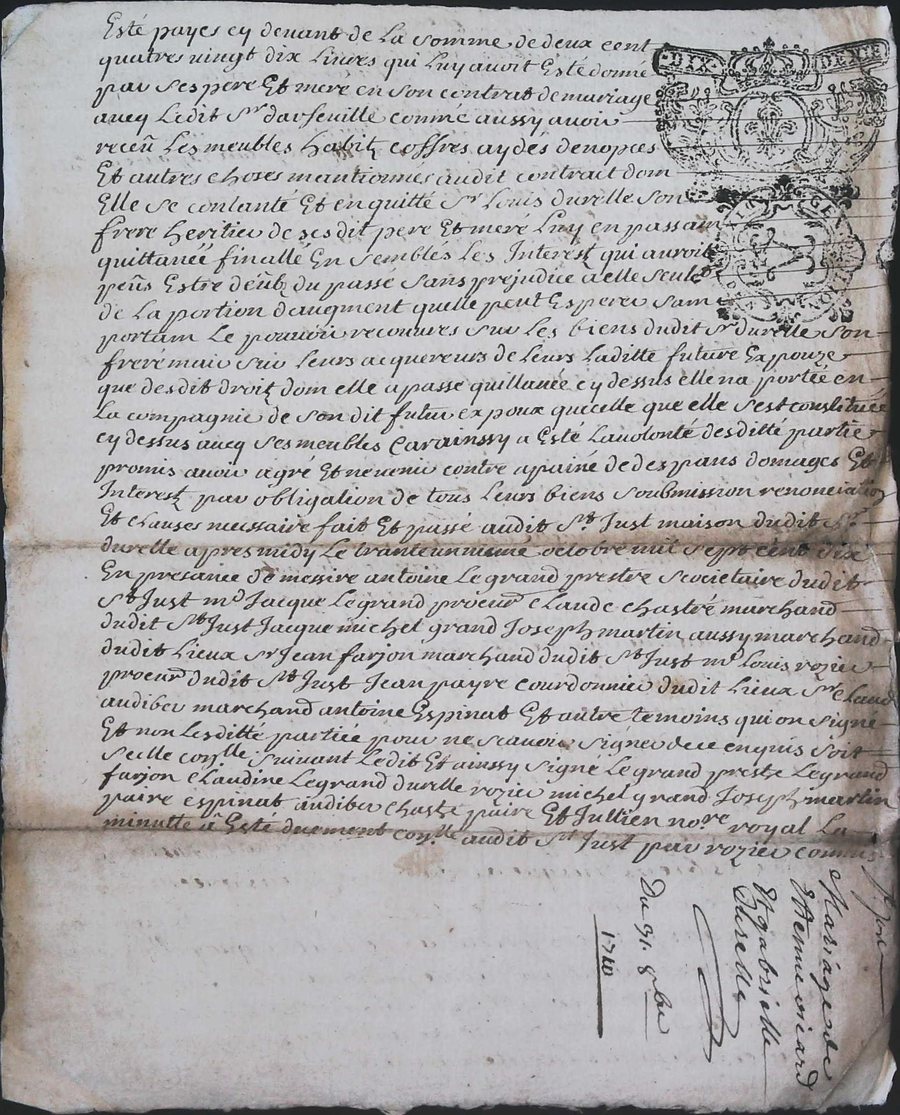 Esté payes cy devant de La somme de deux cent
quatres vingt dix Livres qui Luy avoit Esté donné
par ses pere Et mere en son contrat de mariage
avecq Ledit Sr darfeuille comme aussy avoir
receu Les meubles habitz coffres aydes denopces
Et autres choses mantionnes audit contrait dom
Elle se contante Et en quitte Sr Louis durelle son
frere heritie de ses dit pere Et meré Luy en passam
quittanée finallé En semblés Les Interest qui auroit
peüs Estre deübz du passé sans prejudice a elle seule
de La portion daugment quelle peut Espere sam
portam Le pouvoir recouvres sur Les biens dudit Sr durelle son
frere mais sur Leurs acquereurs de Leurs Laditte future Expouze
que desdit droitz dom elle a passé quittanée cy dessus elle na portée en
La compagnie de son dit futur expoux que celle que elle s'est constituée
cy dessus avecq ses meubles Car ainssy a Esté La volonté desditté partie
promis avoir agré Et ne venir contre apainé de despans domages Et
Interestz par obligation de tous Leurs biens soubmission renonciation
Et clauses necessaire fait Et passé audit St Just maison dudit Sr
durelle apres midy Le tranteunnieme octobre mil sept cent dix
En presance de messire antoine Le grand prestre secretaire dudit
St Just md Jacque Le grand procur claude chastré marchand
dudit St Just Jacque michel grand Joseph martin aussy marchand
dudit Lieux Sr Jean farjon marchand dudit St Just mr Louis rozier
procur dudit St Just Jean payre courdonnie dudit Lieux Sr claud
audiber marchand antoine Espinat Et autre temoins qui on signé
Et non Lesditté partie pour ne scavoir signer de ce enquis soit
scelle conlle suivant Ledit Et ainssy signé Le grand preste Legrand
farjon claudine Legrand durelle rozier michel grand Joseph martin
paire espinat audiber chastre paire Et Jullien nore royal La
minutte a Esté duement conlle audit St Just par rozier commis
DIX DENIE
GEN
Mariage de
Ettienne
Et gabrielle
durelle
Du 31. 8bre
1710